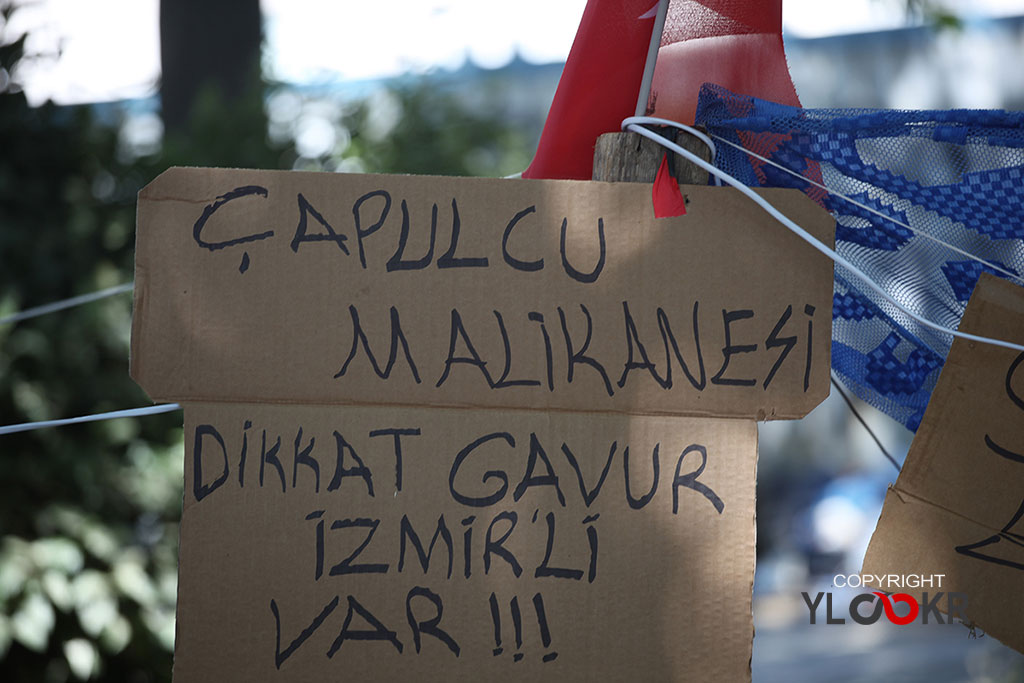 ÇAPULCU
MALİKANESİ
DİKKAT GAVUR
İZMİR'Lİ
VAR !!!
COPYRIGHT